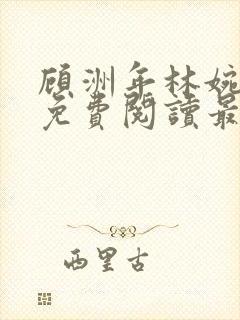 顧洲年林婉
免費閱讀最
西里古